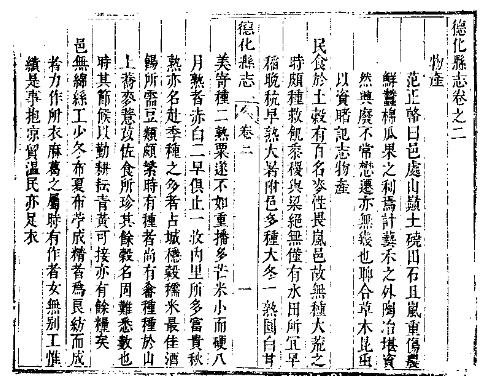 德化縣志卷之二
物產
范正輅曰邑處山巔土硗田石且嵐重傷農
鮮蠶棉瓜果之利為計藝禾之外陶冶堪資
然興廢不常憑遷亦無幾也聊合草木昆虫
以資睹記志物產
民食於土穀有百名麥性畏嵐邑故無種大荒之
時頗種救飢黍稷與粱絕無僅有水田所宜早
稻晚秔早熟大暑附邑多種大冬一熟圓白甘
卷二
一
美嵜種二熟粟遜不如重播多占米小而硬八
月熟者赤白二早俱止一收內里所多富貴秋
熟亦名赴季種之多者占城穩穀糯米最佳酒
餳所需豆類頗繁時有種者尚有畬種種於山
上蕎麥薏苡佐食所珍其餘穀名固難悉數也
時其節候以勤耕耘青黃可接亦有餘糧矣
邑無綿絲工少冬布夏布學成精者為民紡而成
者力作所衣麻葛之屬時有作者女無別工惟
績是事抱凉貿温民亦足衣